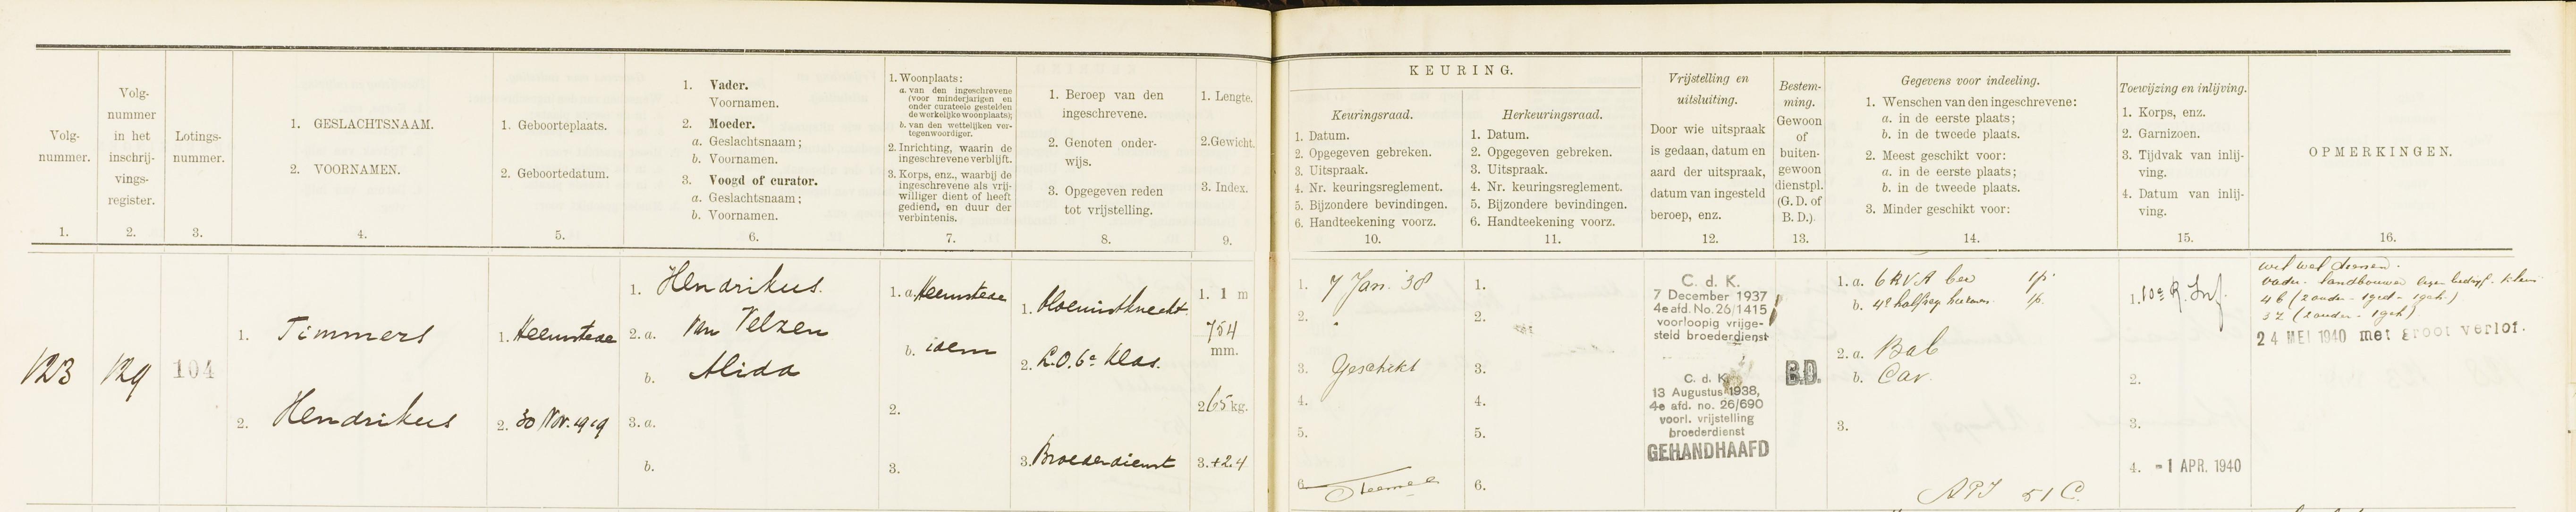 Volg-
nummer.
1.
Volg-
nummer
in het
inschrij-
vings-
register.
2.
Lotings-
nummer.
3.
1. GESLACHTSNAAM.
2. VOORNAMEN.
4.
1. Geboorteplaats.
2. Geboortedatum.
5.
1. Vader.
Voornamen.
2. Moeder.
a. Geslachtsnaam;
b. Voornamen.
3. Voogd of curator.
a. Geslachtsnaam;
b. Voornamen.
6.
1. Woonplaats:
a. van den ingeschrevene
(voor minderjarigen en
onder curateele gestelden
de werkelijke woonplaats);
b. van den wettelijken ver-
tegenwoordiger.
2. Inrichting, waarin de
ingeschrevene verblijft.
3. Korps, enz., waarbij de
ingeschrevene als vrij-
williger dient of heeft
gediend, en duur der
verbintenis.
7.
1. Beroep van den
ingeschrevene.
2. Genoten onder-
wijs.
3. Opgegeven reden
tot vrijstelling.
8.
1. Lengte.
2. Gewicht.
3. Index.
9.
KEURING.
Keuringsraad.
1. Datum.
2. Opgegeven gebreken.
3. Uitspraak.
4. Nr. keuringsreglement.
5. Bijzondere bevindingen.
6. Handteekening voorz.
10.
Herkeuringsraad.
1. Datum.
2. Opgegeven gebreken.
3. Uitspraak.
4. Nr. keuringsreglement.
5. Bijzondere bevindingen.
6. Handteekening voorz.
11.
Vrijstelling en
uitsluiting.
Door wie uitspraak
is gedaan, datum en
aard der uitspraak,
datum van ingesteld
beroep, enz.
12.
Bestem-
ming.
Gewoon
of
buiten-
gewoon
dienstpl.
(G. D. of
B. D.).
13.
Gegevens voor indeeling.
1. Wenschen van den ingeschrevene:
a. in de eerste plaats;
b. in de tweede plaats.
2. Meest geschikt voor:
a. in de eerste plaats;
b. in de tweede plaats.
3. Minder geschikt voor:
14.
Toewijzing en inlijving.
1. Korps, enz.
2. Garnizoen.
3. Tijdvak van inlij-
ving.
4. Datum van inlij-
ving.
15.
OPMERKINGEN.
16.
123
129
104
1. Timmers
2. Hendrikus
1. Heemstede
2. 30 Nov. 1919
1. Hendrikus.
2. a. Van Velzen
b. Alida
3. a.
b.
1. a. Heemstede
b. idem
2.
3.
1. bloemistknecht.
2. L.O. 6e klas.
3. Broederdienst
1. 1 m
754
mm.
2. 65 kg.
3. +2.4
1. 7 Jan. '38
2.
3. Geschikt
4.
5.
6.
1.
2.
3.
4.
5.
6.
C. d. K.
7 December 1937
4e afd. No. 26/1415
voorloopig vrijge-
steld broederdienst
C. d. K.
13 Augustus 1938,
4e afd. no. 26/690
voorl. vrijstelling
broederdienst
GEHANDHAAFD
B.D.
1. a. 6 RVA
b. 4e
2. a. Bab
b. Cav.
3.
51 C.
1. 10e R. Inf.
2.
3.
4. -1 APR. 1940
wil wel dienen.
vader - landbouwer eigen bedrijf.
24 MEI 1940 met groot verlof.